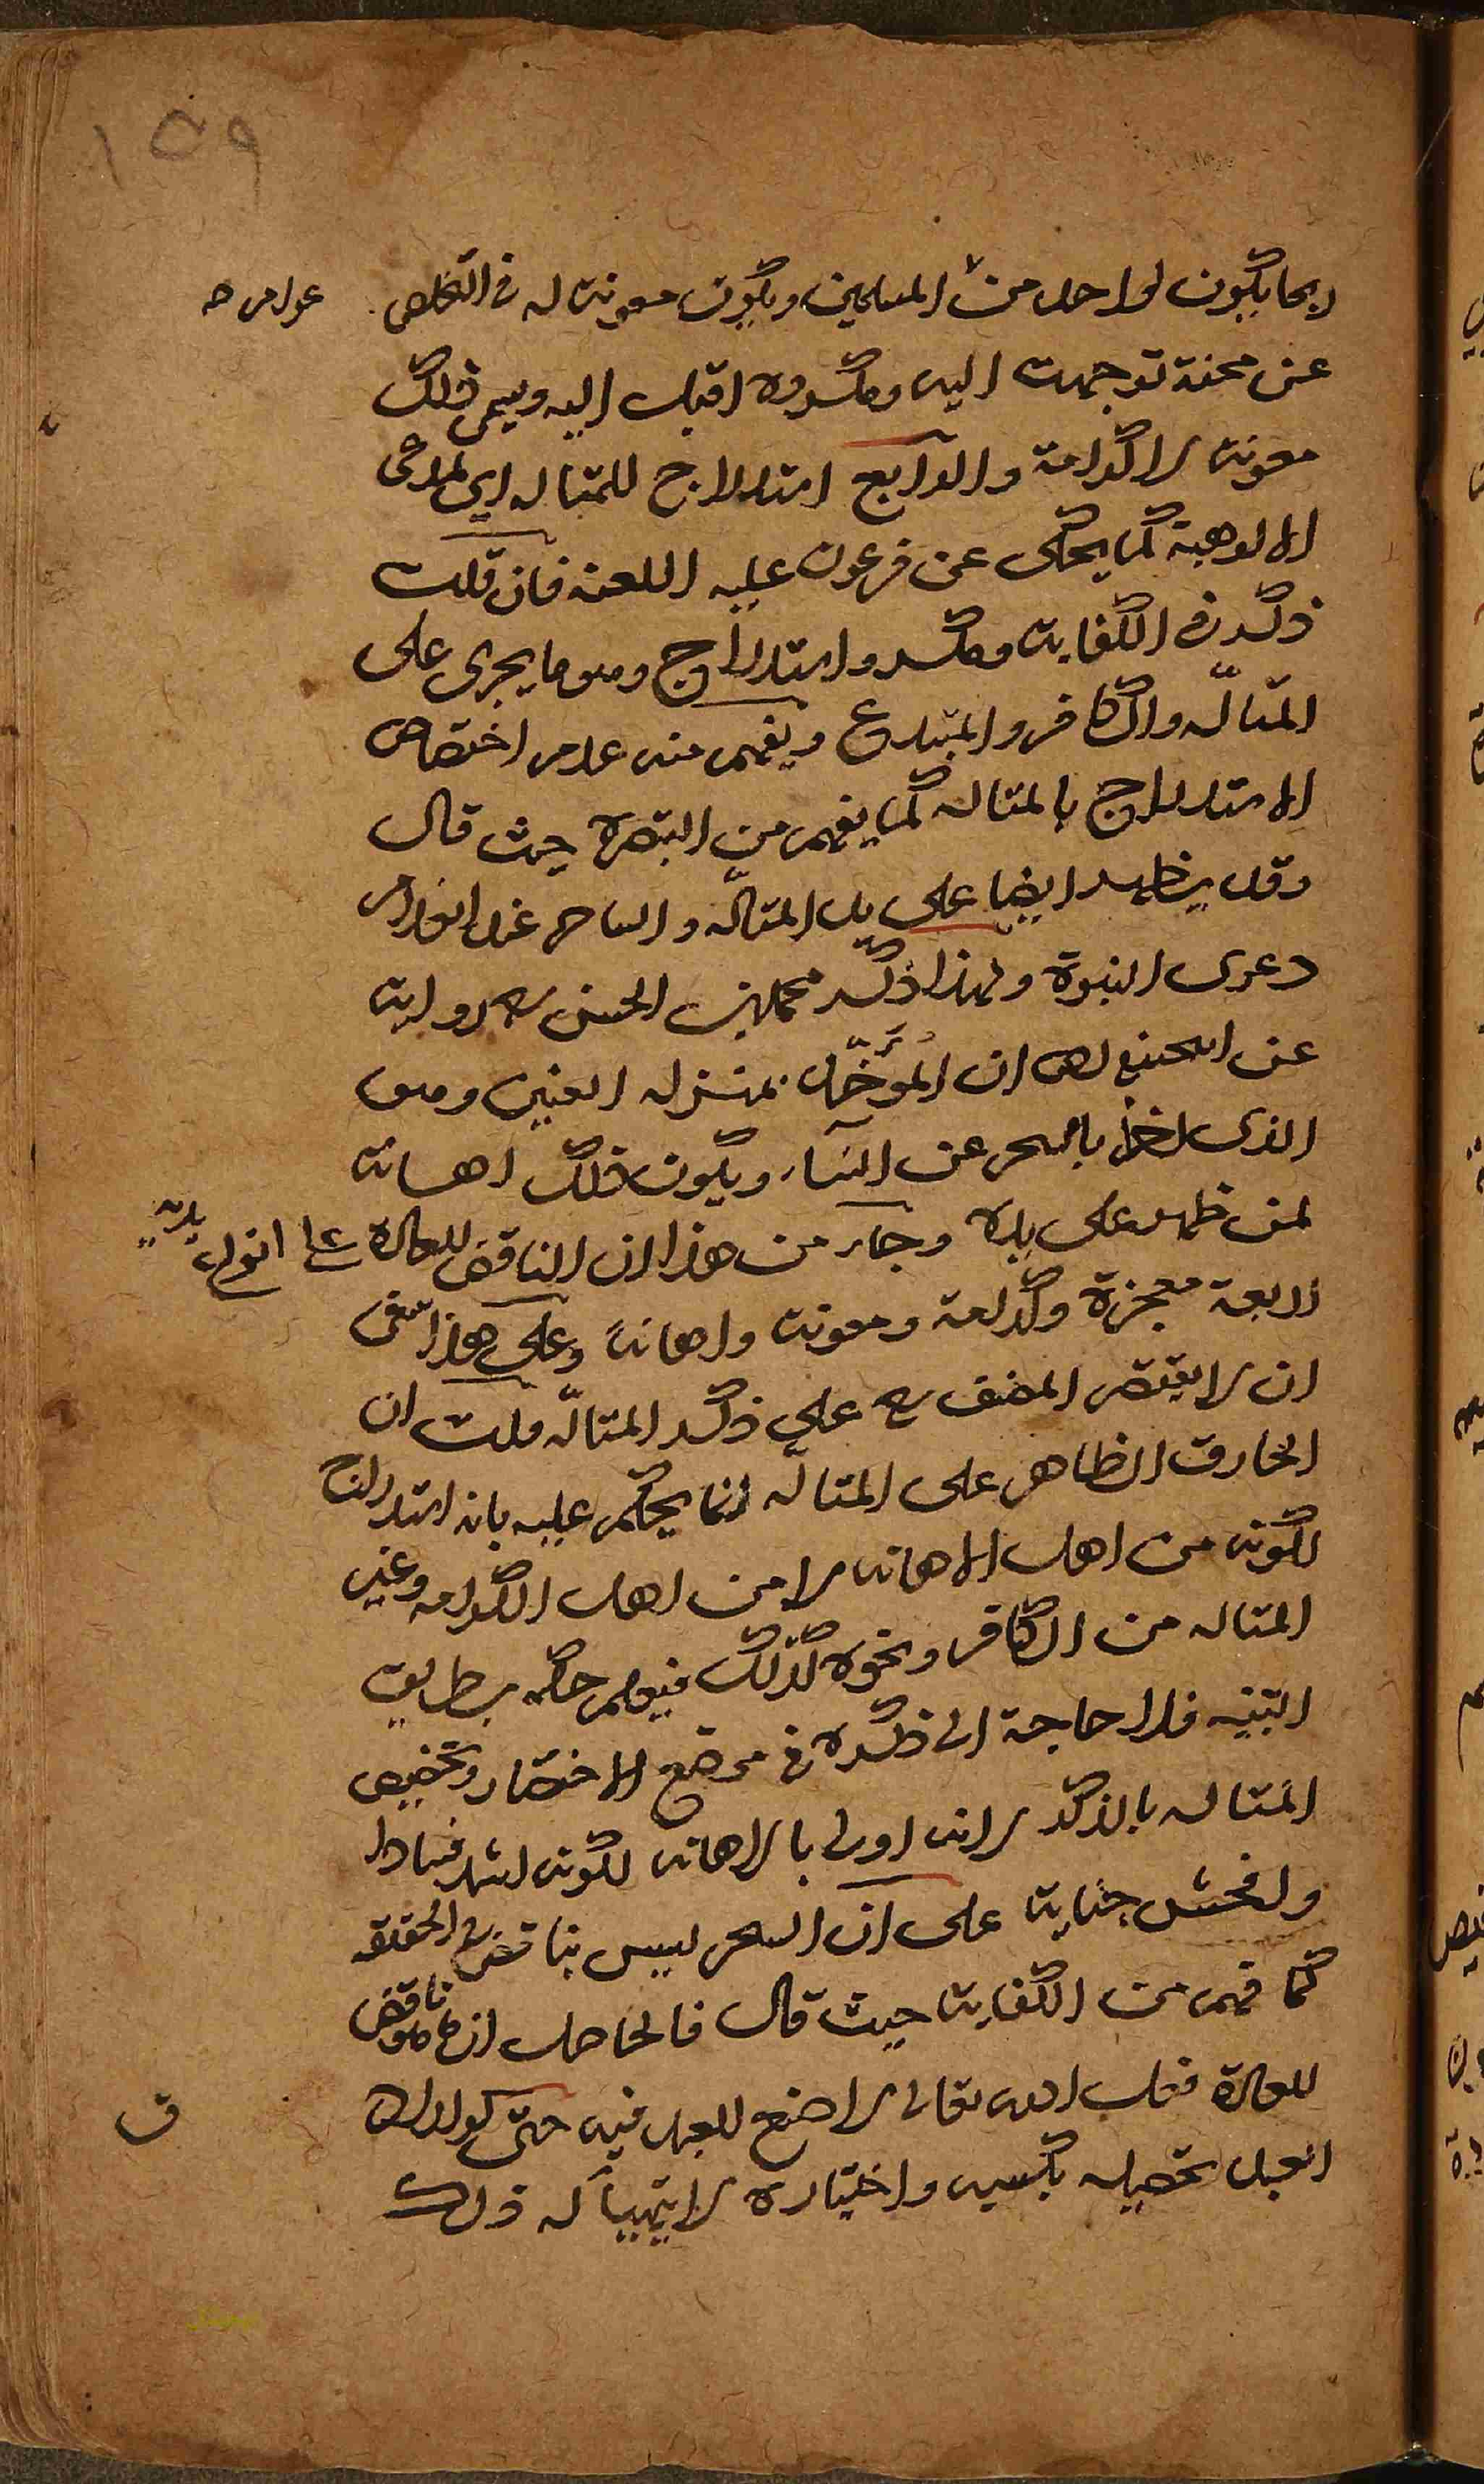 ١٥٩
ربما يكون لواحد من المسلمين ويكون معونة له في التخلص
عوام صه
عن محنة توجهت اليه ومكروه اقبل اليه ويسمى ذلك
معونة لا كرامة والرابع استدراج للمتاله اي لمدعى
الالوهية كما يحكى عن فرعون عليه اللعنة فان قلت
ذكر في الكفاية ومكر واستدراج وهو ما يجرى على
المتألّه والكافر والمبتدع ويفهم منه عدم اختصاص
الاستدراج بالمتاله كما يفهم من التبصرة حيث قال
وقد يظهر ايضا على يد المتألّه والساحر عند انعدام
دعوى النبوة ولهذا ذكر محمد بن الحسن رح رواية
عن ان المُؤَخَّذ بمنزلة العنين وهو
الذى اخذ بالسحر عن النساء ويكون ذلك اهانة
لمن ظهر على يده وجاء من هذا ان الناقض للعادة على انواع
اربعة معجزة وكرامة ومعونة واهانة وعلى هذا
ان لا يقتصر المصنف رح على ذكر المتألّه قلت ان
الخارق الظاهر على المتالّه انما يحكم عليه بانه استدراج
لكونه من اهل الاهانة لا من اهل الكرامه وغير
المتاله من الكافر ونحوه كذلك فيعلم حكمه بطريق
التنبيه فلا حاجة الى ذكره في موضع الاختصار وتخصيص
المتاله بالذكر لانه اولى بالاهانه لكونه اشد فسادا
وافحش جناية على ان السحر ليس بناقض في الحقيقه
كما فهم من الكفاية حيث قال فالحاصل ان ما هو ناقض
للعادة فعل الله تعالى لا صنع للعبد فيه حتى لو اراد
العبد تحصيله بكسبه واختياره لا يتهيأ له ذلك